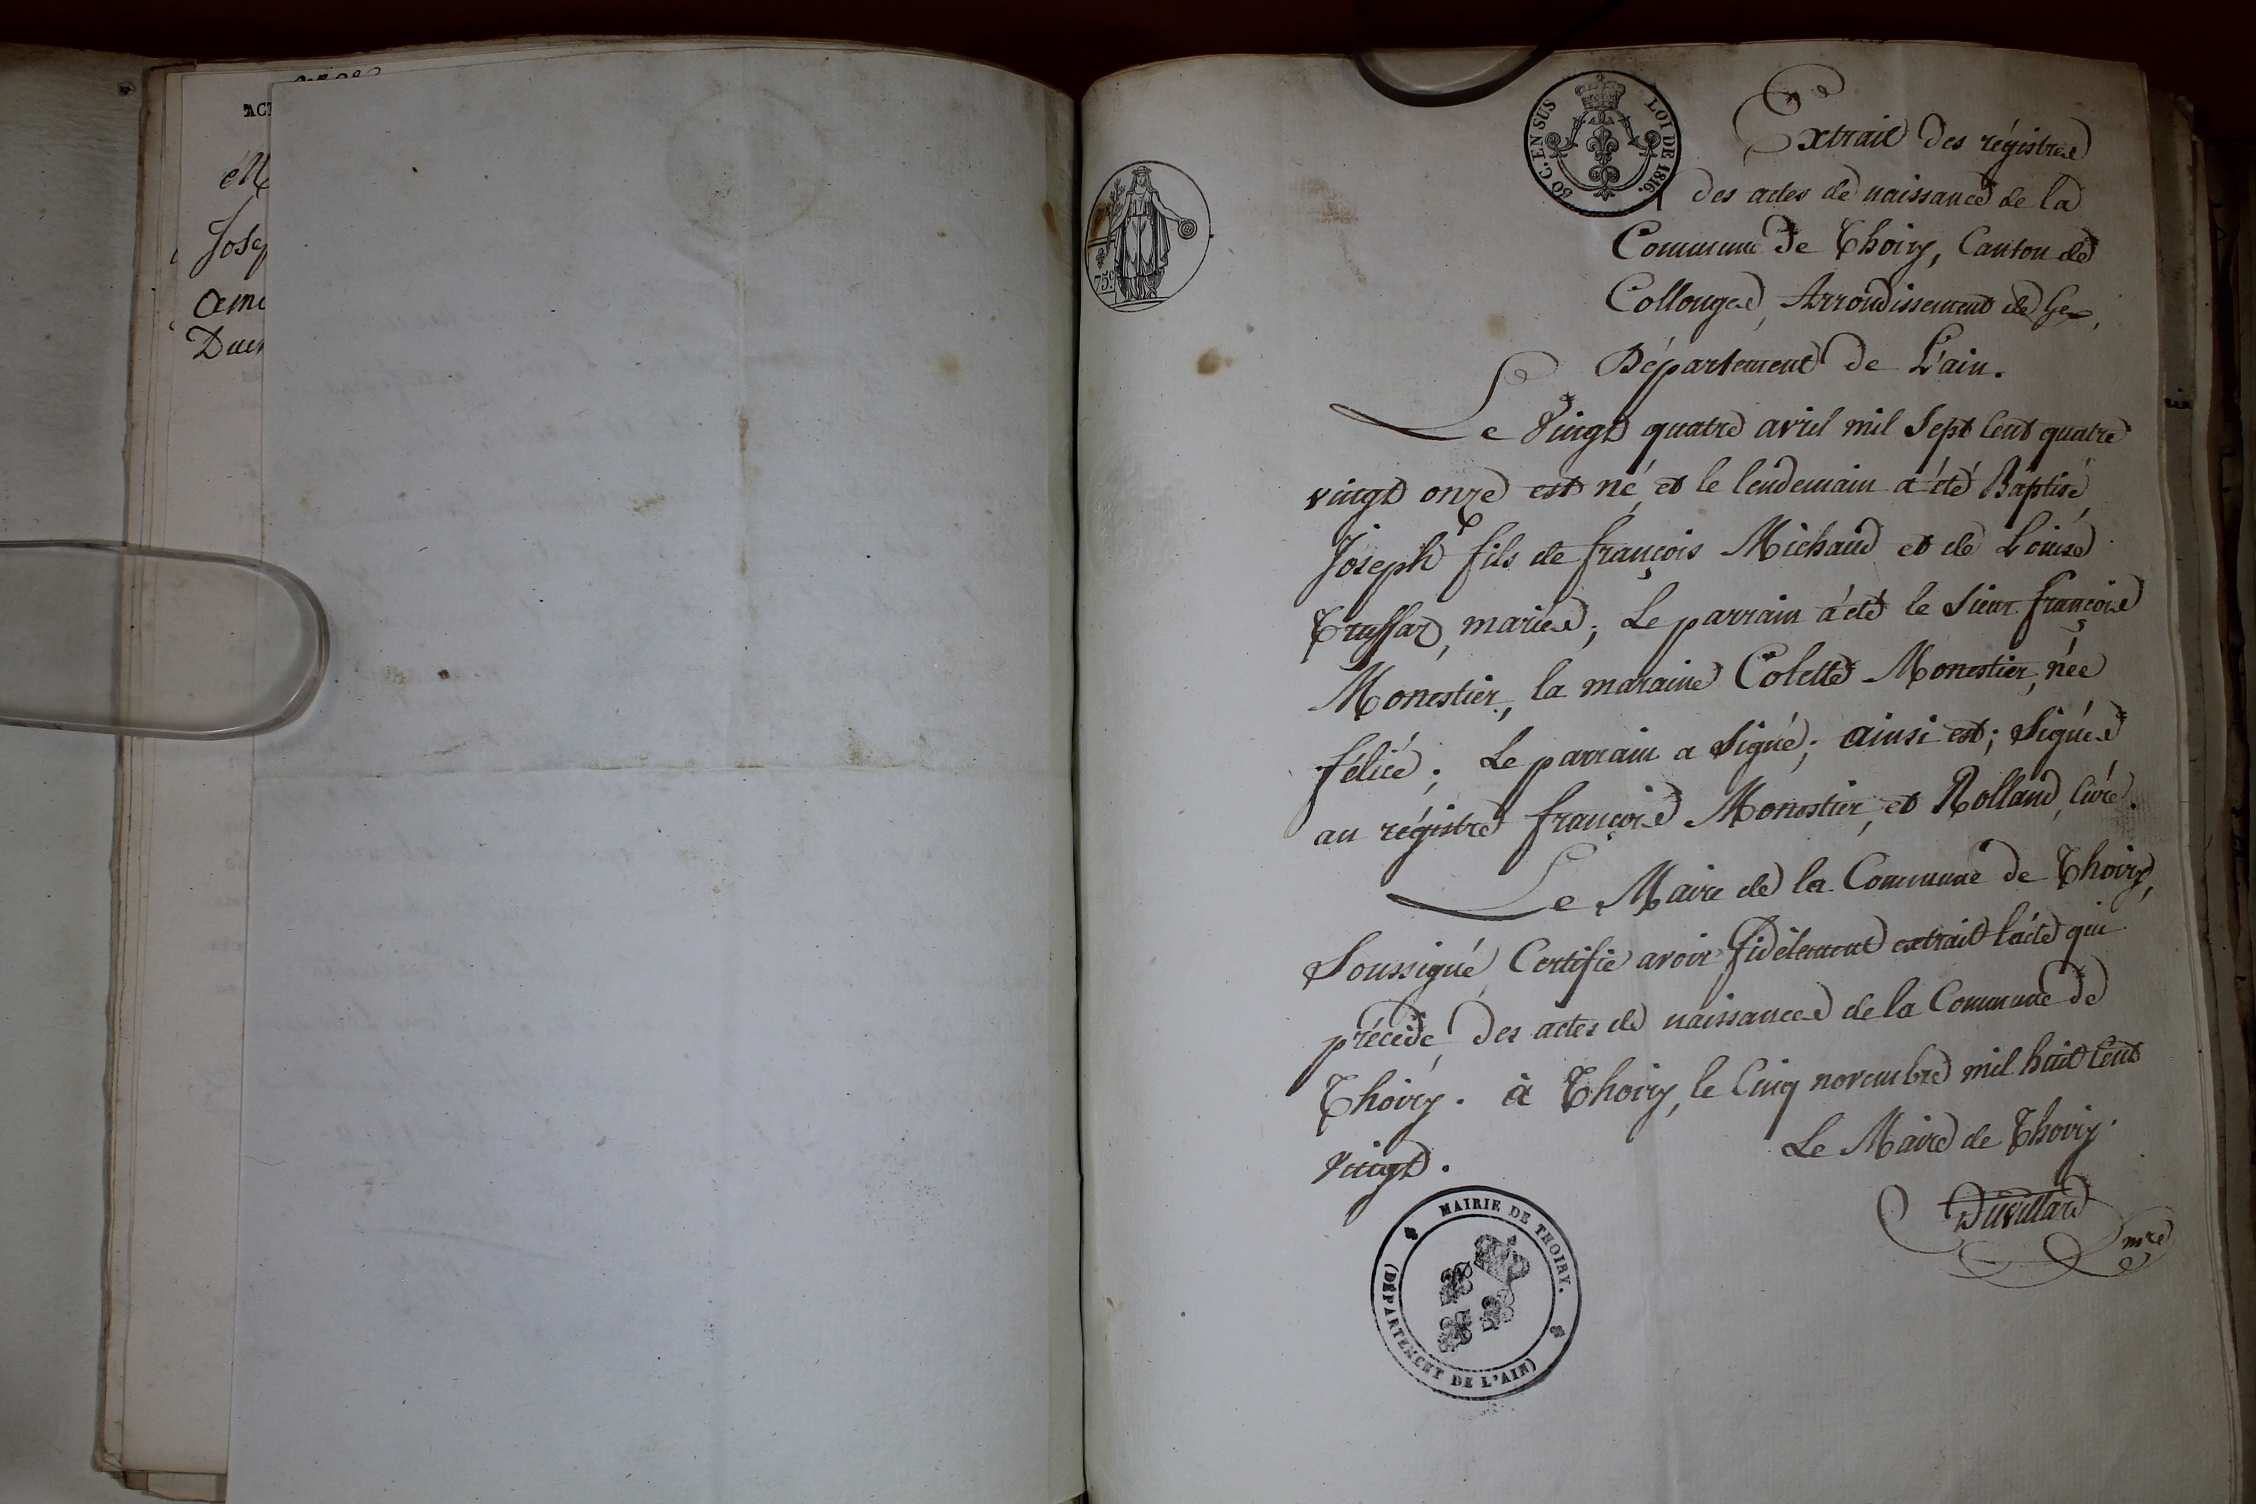 ACT
Jose
50 C. EN SUS
LOI DE 1816.
75 c
Extrait des régistres
des actes de naissance de la
Commune de Thoiry, Canton de
Collonges, Arrondissement de Gex,
Département de L'ain.
Le Vingt quatre avril mil Sept Cent quatre
vingt onze est né, et le lendemain a été Baptisé,
Joseph fils de françois Michaud et de Louise
Truffaz, mariés; Le parrain a été le Sieur françois
Monestier, la maraine Colette Monestier, née
félicé; Le parrain a Signé; ainsi est; Signés
au régistre françois Monestier, et Rolland, Curé.
Le Maire de la Commune de Thoiry,
Soussigné, Certifie avoir fidélement extrait l'acte qui
précède, des actes de naissances de la Commune de
Thoiry. à Thoiry, le Cinq novembre mil huit Cent
Vingt.
Le Maire de Thoiry.
Duvillard
mre
MAIRIE DE THOIRY.
(DÉPARTEMENT DE L'AIN)